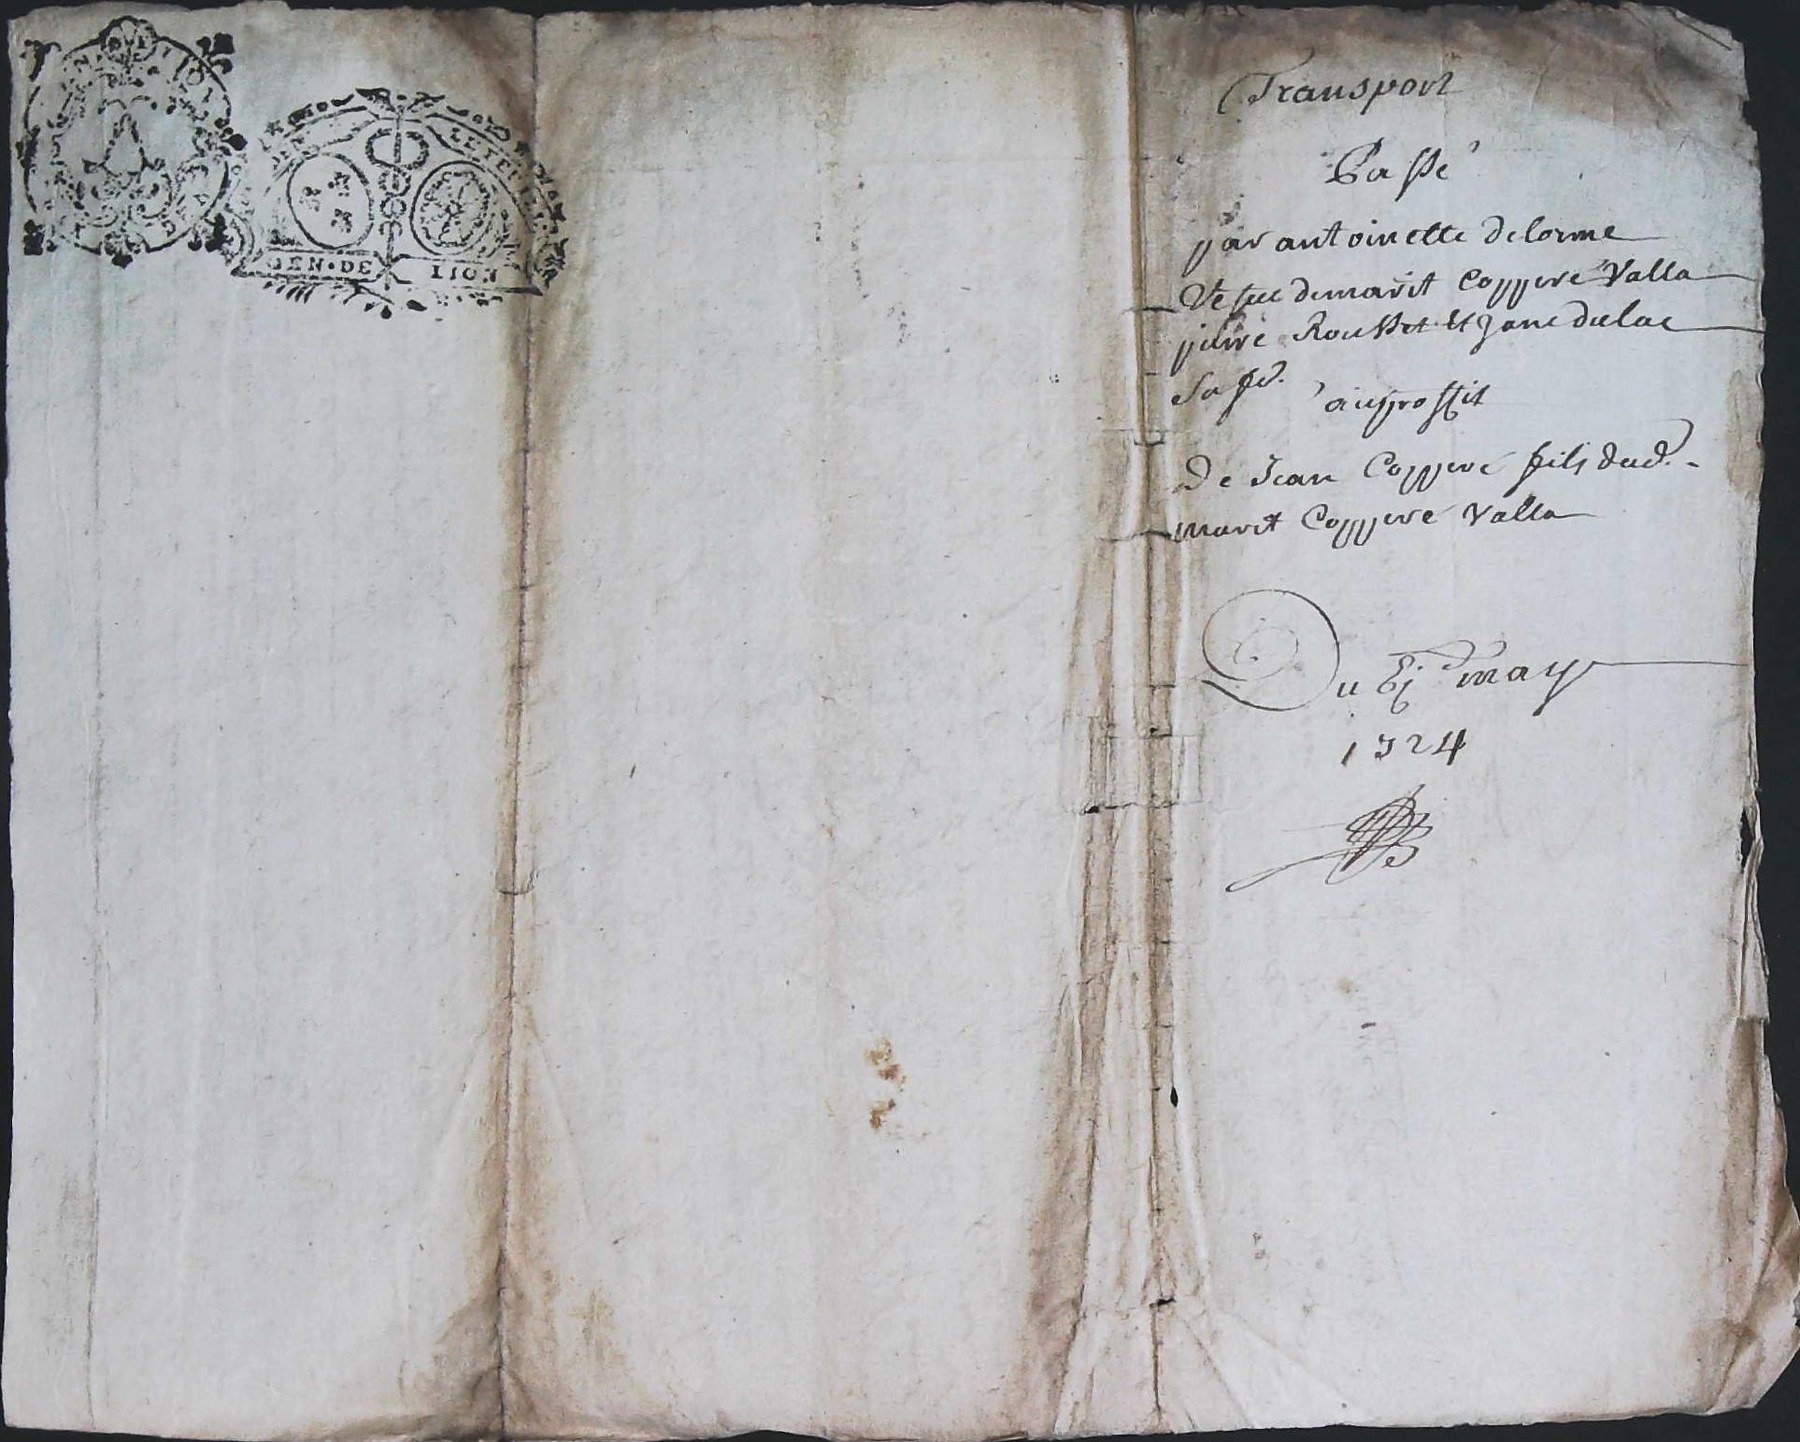 GEN·DE LION
Transport
Passé
par antoinette delorme
Vefue demarit Coppere Valla
pierre Rousset Et Jane dulac
Sa fe.
auproffit
De Jean Coppere fils dud.
marit Coppere Valla
Du may
1724